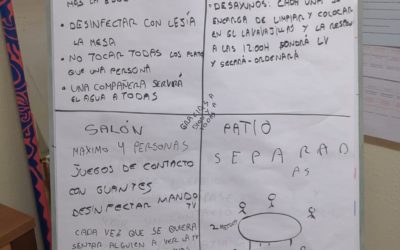 MAS LA BODE
• DESINFECTAR CON LESÍA
LA MESA
• NO TOCAR TODAS LOS PLATOS
QUE UNA PERSONA
• UNA COMPAÑERA SERVIRÁ
EL AGUA A TODAS
• DESAYUNOS: CADA UNA SE
ENCARGA DE LIMPIAR Y COLOCAR
EN EL LAVAVAJILLAS Y LA RESPON
A LAS 12:00H SONDRÁ LV
Y SECARÁ-ORDENARÁ
GRACIAS A
TODOS Y A
TODAS
SALÓN
MAXIMO 4 PERSONAS
JUEGOS DE CONTACTO
CON GUANTES
DESINFECTAR MANDO
TV
CADA VEZ QUE SE QUIERA
SENTAR ALGUIEN A VER LA TV
PATIO
SEPARAD
AS
2 METROS